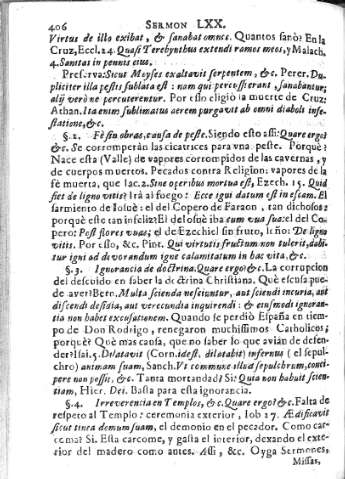 406 SERMON LXX.
Virtus de illo exibat, & sanabat omnes. Quantos sanò? En la
Cruz, Eccl. 24. Quasi Terebynthus extendi ramos meos, y Malach.
4. Sanitas in pennis eius.
Preserva: Sicut Moyses exaltavit serpentem, &c. Perer. Du-
pliciter illa pestis sublata est: nam qui percussi erant, sanabantur;
alij verò ne percuterentur. Por esso eligiò la muerte de Cruz:
Athan. Ita enim sublimatus aerem purgavit ab omni diaboli infe-
statione, &c.
§. 2. Fè sin obras, causa de peste. Siendo esto assi: Quare ergo?
&c. Se corromperàn las cicatrices para vna peste. Porquè?
Nace esta (Valle) de vapores corrompidos de las cavernas, y
de cuerpos muertos. Pecados contra Religion: vapores de la
fè muerta, que Iac. 2. Sine operibus mortua est, Ezech. 15. Quid
fiet de ligno vitis? Irà al fuego: Ecce igni datum est in escam. El
sarmiento de Iosuè: el del Copero de Faraon, tan dichoso:
porquè este tan infeliz? El de Iosuè iba cum vua sua: el del Co-
pero: Post flores vuas; el de Ezechiel sin fruto, leño: De ligno
vitis. Por esso, &c. Pint. Qui virtutis fructum non tulerit, dabi-
tur igni ad devorandum igne calamitatum in hac vita, &c.
§. 3. Ignorancia de doctrina. Quare ergo? &c. La corrupcion
del descuido en saber la doctrina Christiana. Què escusa pue-
de aver? Bern. Multa scienda nesciuntur, aut sciendi incuria, aut
discendi desidia, aut verecundia inquirendi: & eiusmodi ignoran-
tia non habet excusationem. Quando se perdiò España en tiem-
po de Don Rodrigo, renegaron muchissimos Catholicos;
porquè? Què mas causa, que no saber lo que avian de defen-
der? Isai. 5. Dilatavit (Corn. idest, dilatabit) infernus (el sepul-
chro) animam suam, Sanch. Vt commune illud sepulchrum, conci-
pere non possit, &c. Tanta mortandad? Si: Quia non habuit scien-
tiam, Hier. Dei. Basta para esta ignorancia.
§. 4. Irreverencia en Templos, &c. Quare ergo? &c. Falta de
respeto al Templo: ceremonia exterior, Iob 17. Ædificavit
sicut tinea domum suam, el demonio en el pecador. Como car-
coma? Si. Esta carcome, y gasta el interior, dexando el exte-
rior del madero como antes. Assi, &c. Oyga Sermones,
Missas,